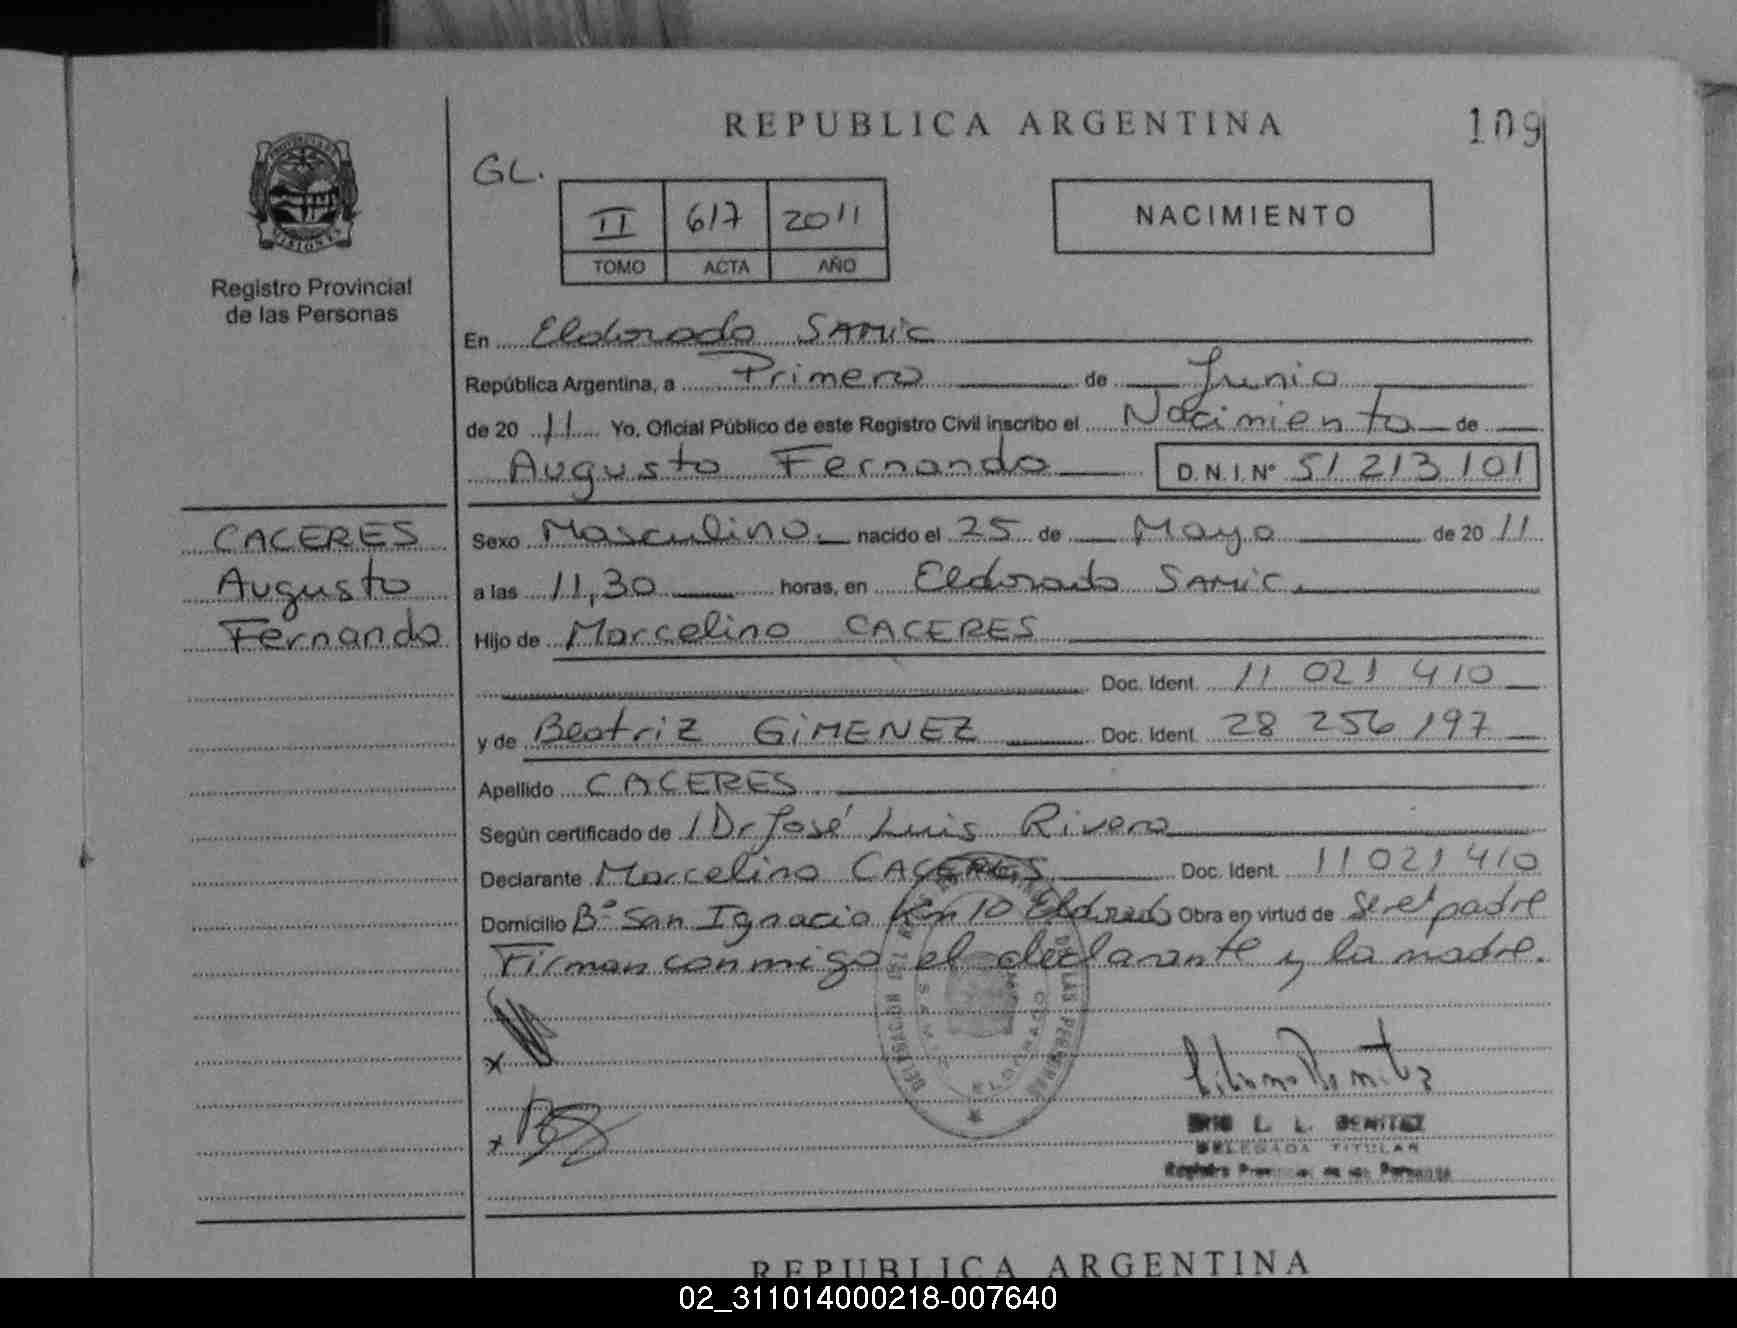 REPUBLICA ARGENTINA
109
GL.
II 617 2011
TOMO ACTA AÑO
NACIMIENTO
PROVINCIA DE MISIONES
Registro Provincial
de las Personas
En Eldorado SAMIC
República Argentina, a Primero de Junio
de 2011 Yo, Oficial Público de este Registro Civil inscribo el Nacimiento de
Augusto Fernando D.N.I.Nº 51 213 101
CACERES
Augusto
Fernando
Sexo Masculino nacido el 25 de Mayo de 2011
a las 11,30 horas, en Eldorado SAMIC
Hijo de Marcelino CACERES
Doc. Ident. 11 021 410
y de Beatriz GIMENEZ Doc. Ident. 28 256 197
Apellido CACERES
Según certificado de Dr José Luis Rivero
Declarante Marcelino CACERES Doc. Ident. 11 021 410
Domicilio Bº San Ignacio Km 10 Eldorado Obra en virtud de ser el padre
Firman conmigo el declarante y la madre.
x
x
DE LAS PERSONAS
SAMIC
L. L. BENITEZ
DELEGADA TITULAR
Registro Provincial de las Personas
REPUBLICA ARGENTINA
02_311014000218-007640